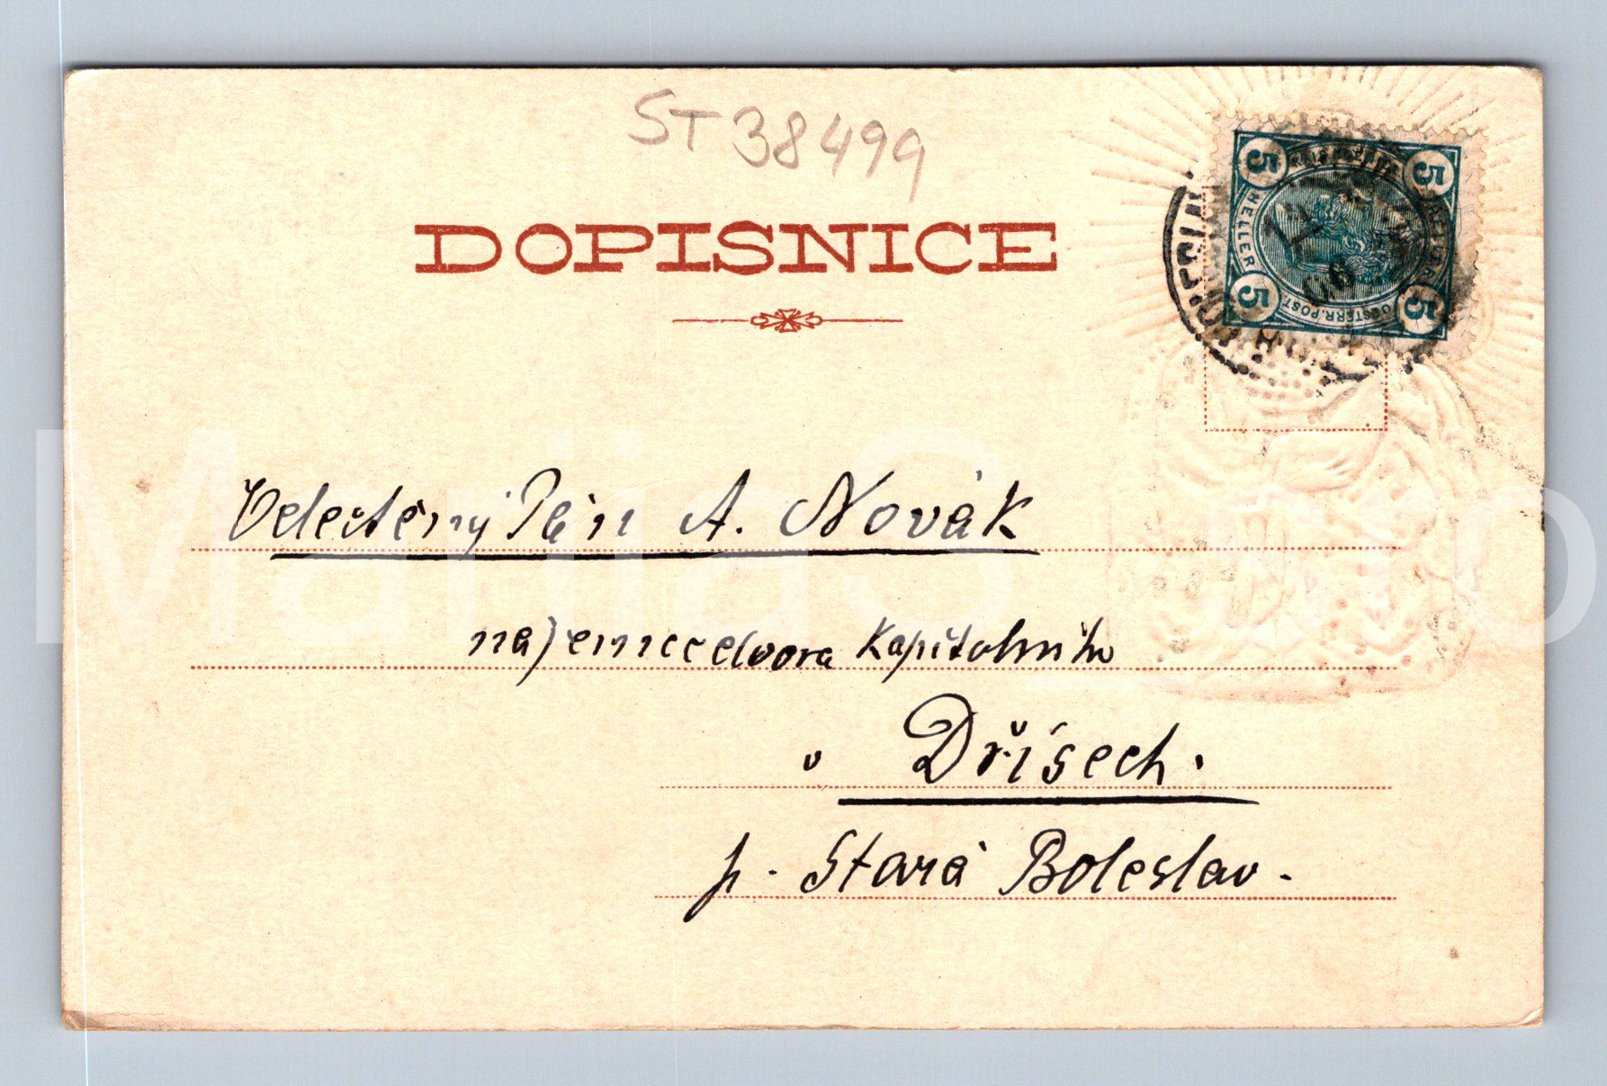 ST 38499
DOPISNICE
5 5 5 5
HELLER HELLER
OESTERR. POST
Velectěný Pán A. Novák
najemce dvora Kapitolního
v Dřísech.
p. Stará Boleslav.